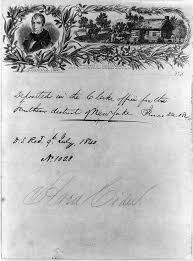 Deposited in the Clerks office for the
Southern district of New York June 22. 1840
D.S. Recd 9th July, 1840
No 1028